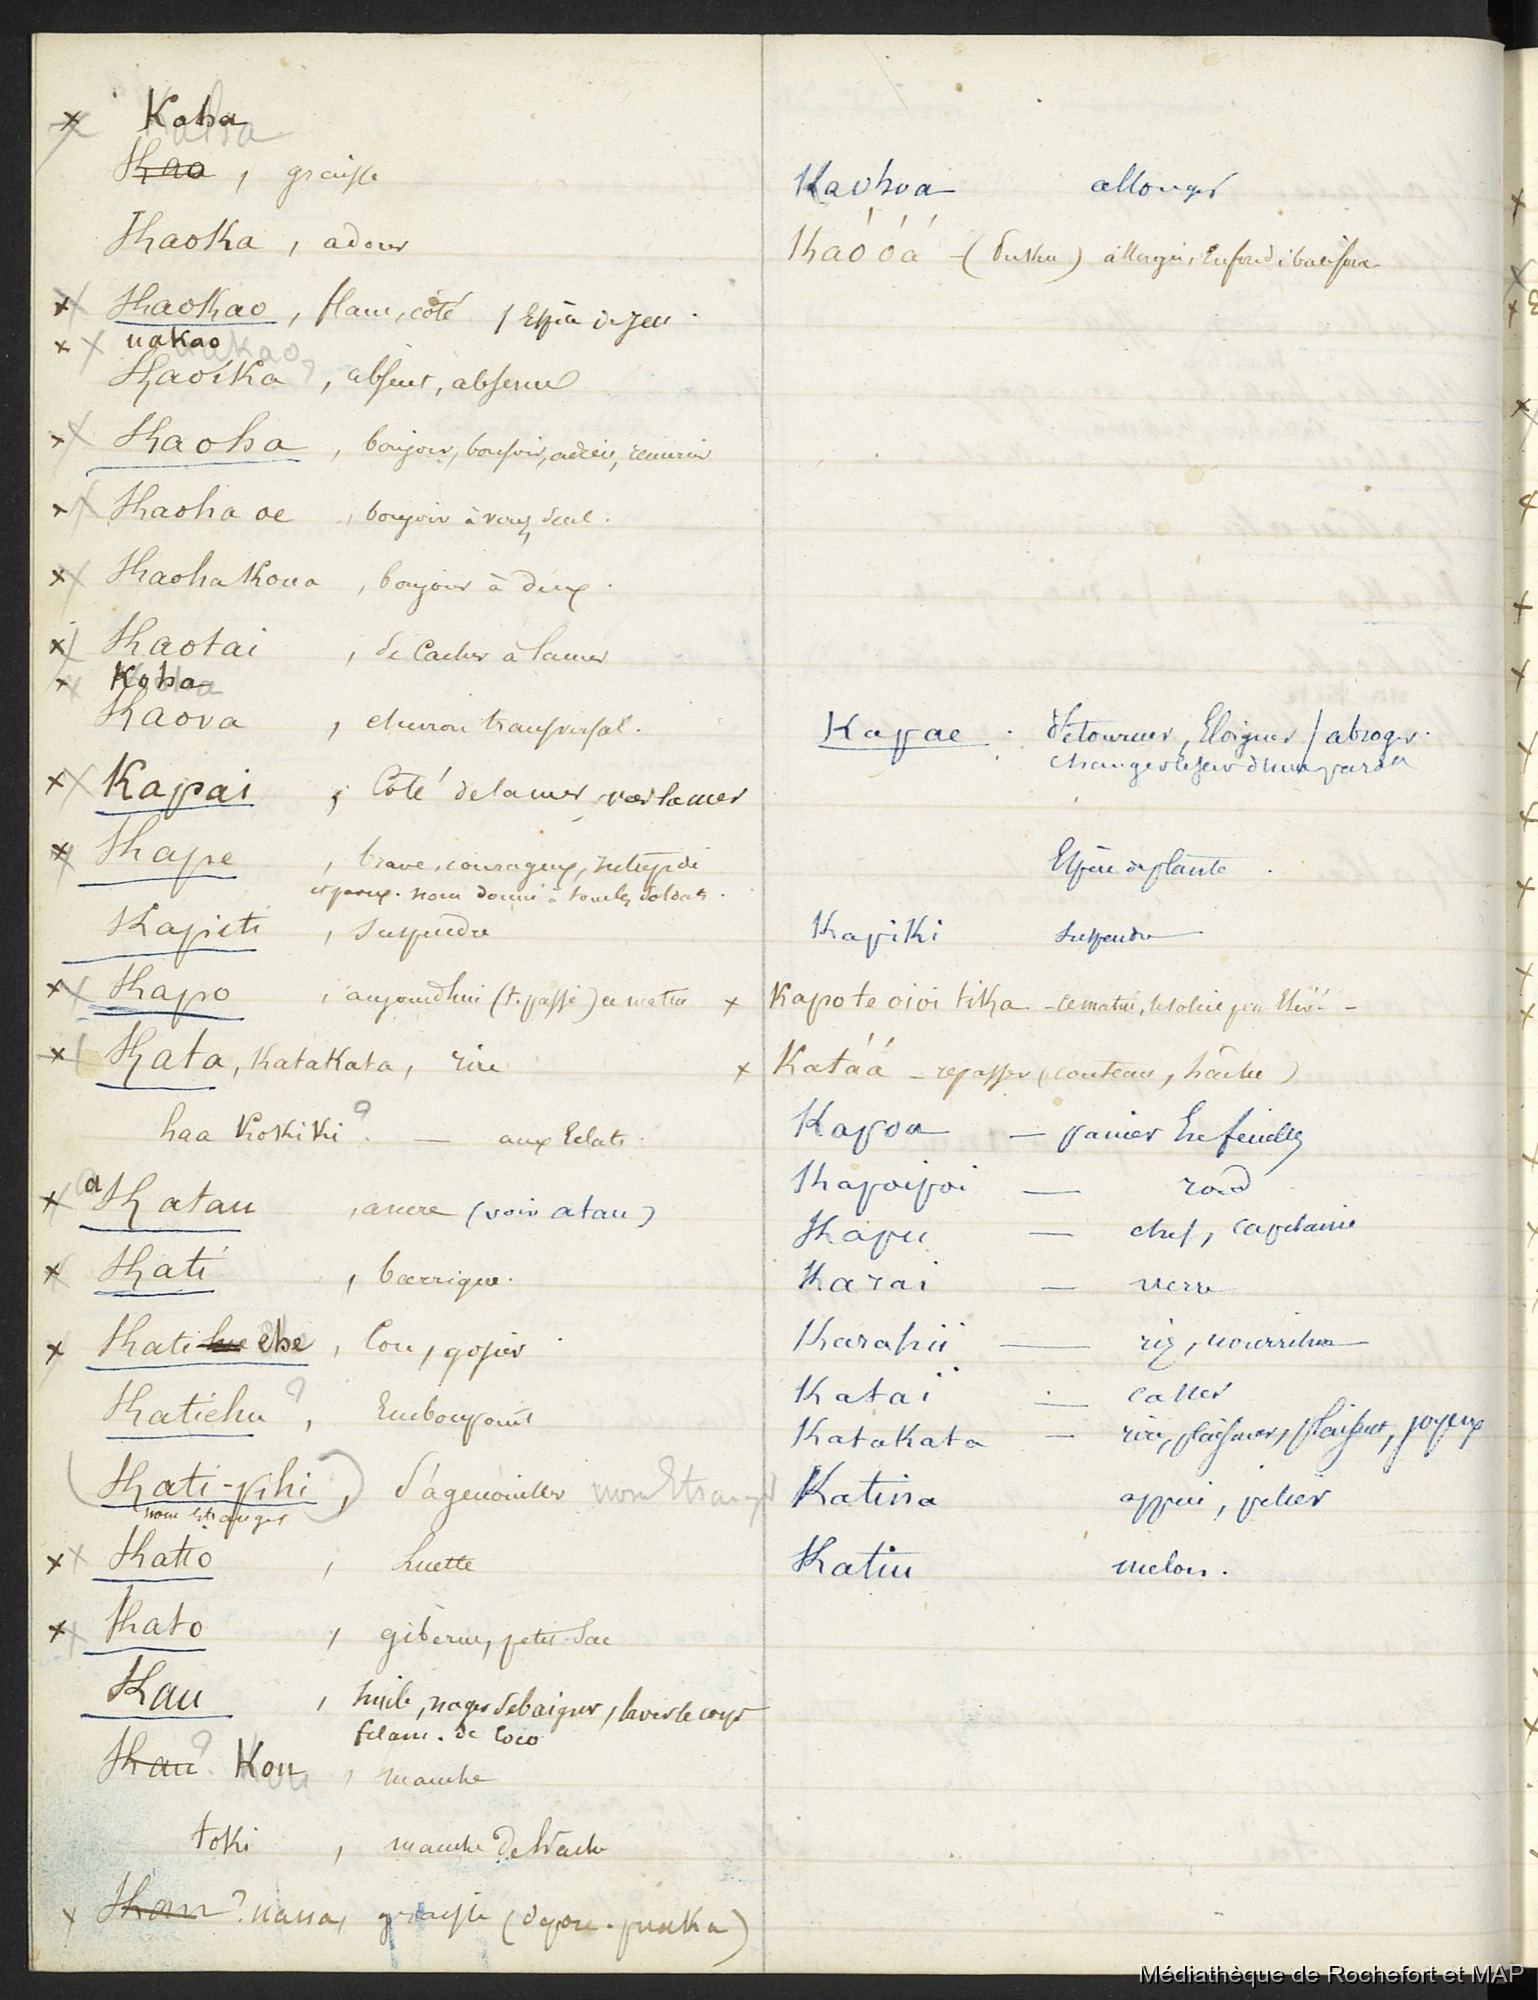 Koha
Kao, graisse
Kaoka, adorer
Kaokao, flanc, côté / Espèce de jeu.
nakao
Kaoika, absent, absence
Kaoha, bonjour, bonsoir, adieu, remercier
Kaoha oe, bonjour à vous seul.
Kaoha Koua, bonjour à deux.
Kaotai, se cacher à la mer
Koha
Kaova, chevron transversal.
Kapai, Côté de la mer, vers la mer
Kape, brave, courageux, intrépide
nom donné à tous les soldats.
Kapiti, suspendre
Kapo, aujourdhui (t. passé) ce matin
Kata, Katakata, rire
haa Kokiki? — aux Eclats.
a
Katau, ancre (voir atau)
Kati, barrique.
Kati hu ehe, Cou, gosier
Katiehu?, Embonpoint
(Kati-pihi), s'agenouiller nom Etranger
nom Etranger
Katio, luette
Kato, giberne, petit sac
Kau, huile, nager se baigner, laver le corps
filam. de Coco
Kau? Kou, manche
toki, manche de hache
Kau? nana, graisse (de porc. puaka)
Kaohoa allonger
Kaóóá - ( ) allonger,
Kapae. détourner, Eloigner / abroger.
changer le sens d'une parole
Espèce de plante.
Kapiki suspendre
Kapo te oioi tika - ce matin, le soleil peu
Katáá - repasser (couteau, hâche)
Kapoa — panier En feuilles
Kapoipoi — rond
Kapu — chef, capitaine
Karai — verre
Karahii — riz, nourriture
Katai —
Katakata — rire, plaisanter, plaisant, joyeux
Katina appui, pilier
Katiu melon.
Médiathèque de Rochefort et MAP